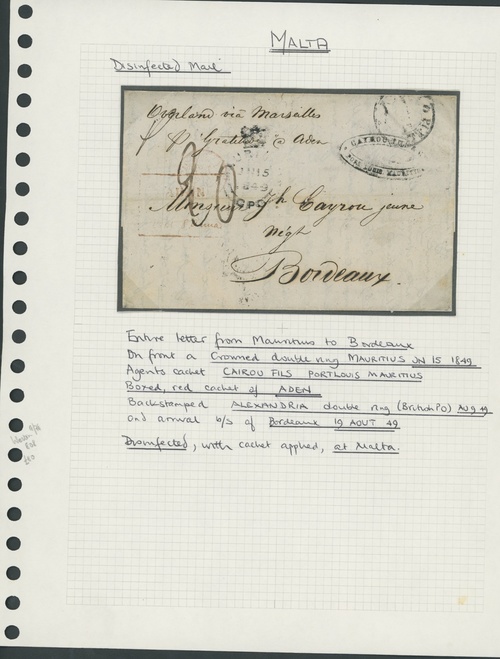 MALTA
Disinfected Mail
Overland viâ Marseilles
p. Gratitude @ Aden
CAYROU FILS
PORT LOUIS MAURITIUS
JN 15
1849
G.P.O
20
ADEN
Monsieur Jh Cayrou jeune
Bordeaux.
Entire letter from Mauritius to Bordeaux
On front a Crowned double ring MAURITIUS JN 15 1849.
Agents cachet CAIROU FILS PORTLOUIS MAURITIUS
Boxed, red cachet of ADEN
Backstamped ALEXANDRIA double ring (British PO) AUG 49
and arrival b/s of Bordeaux 19 AOUT 49
Disinfected, with cachet applied, at Malta.